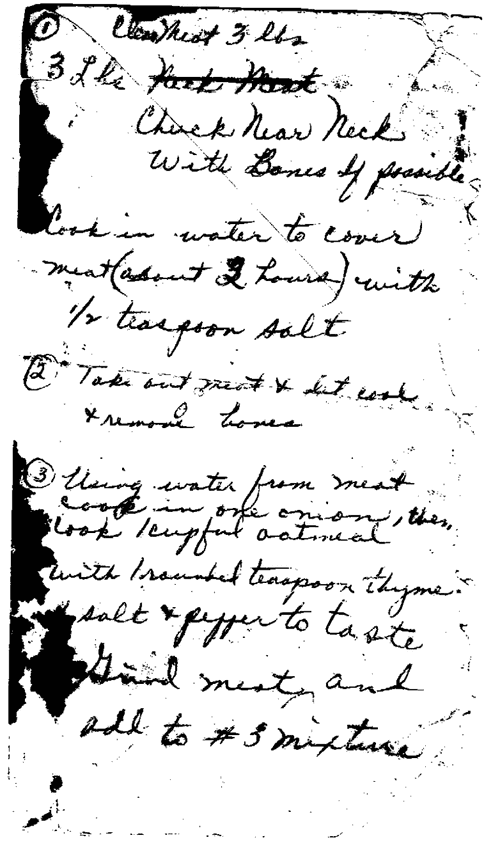 ① Clear Meat 3 lbs
3 Lbs Neck Meat
Chuck Near Neck
With Bones If possible
Cook in water to cover
meat (about 3 hours) with
1/2 teaspoon salt
② Take out meat & let cool
& remove bones
③ Using water from meat
cook in one onion, then
cook 1 cupful oatmeal
with 1 rounded teaspoon thyme.
salt & pepper to taste
Grind meat and
add to #3 mixture